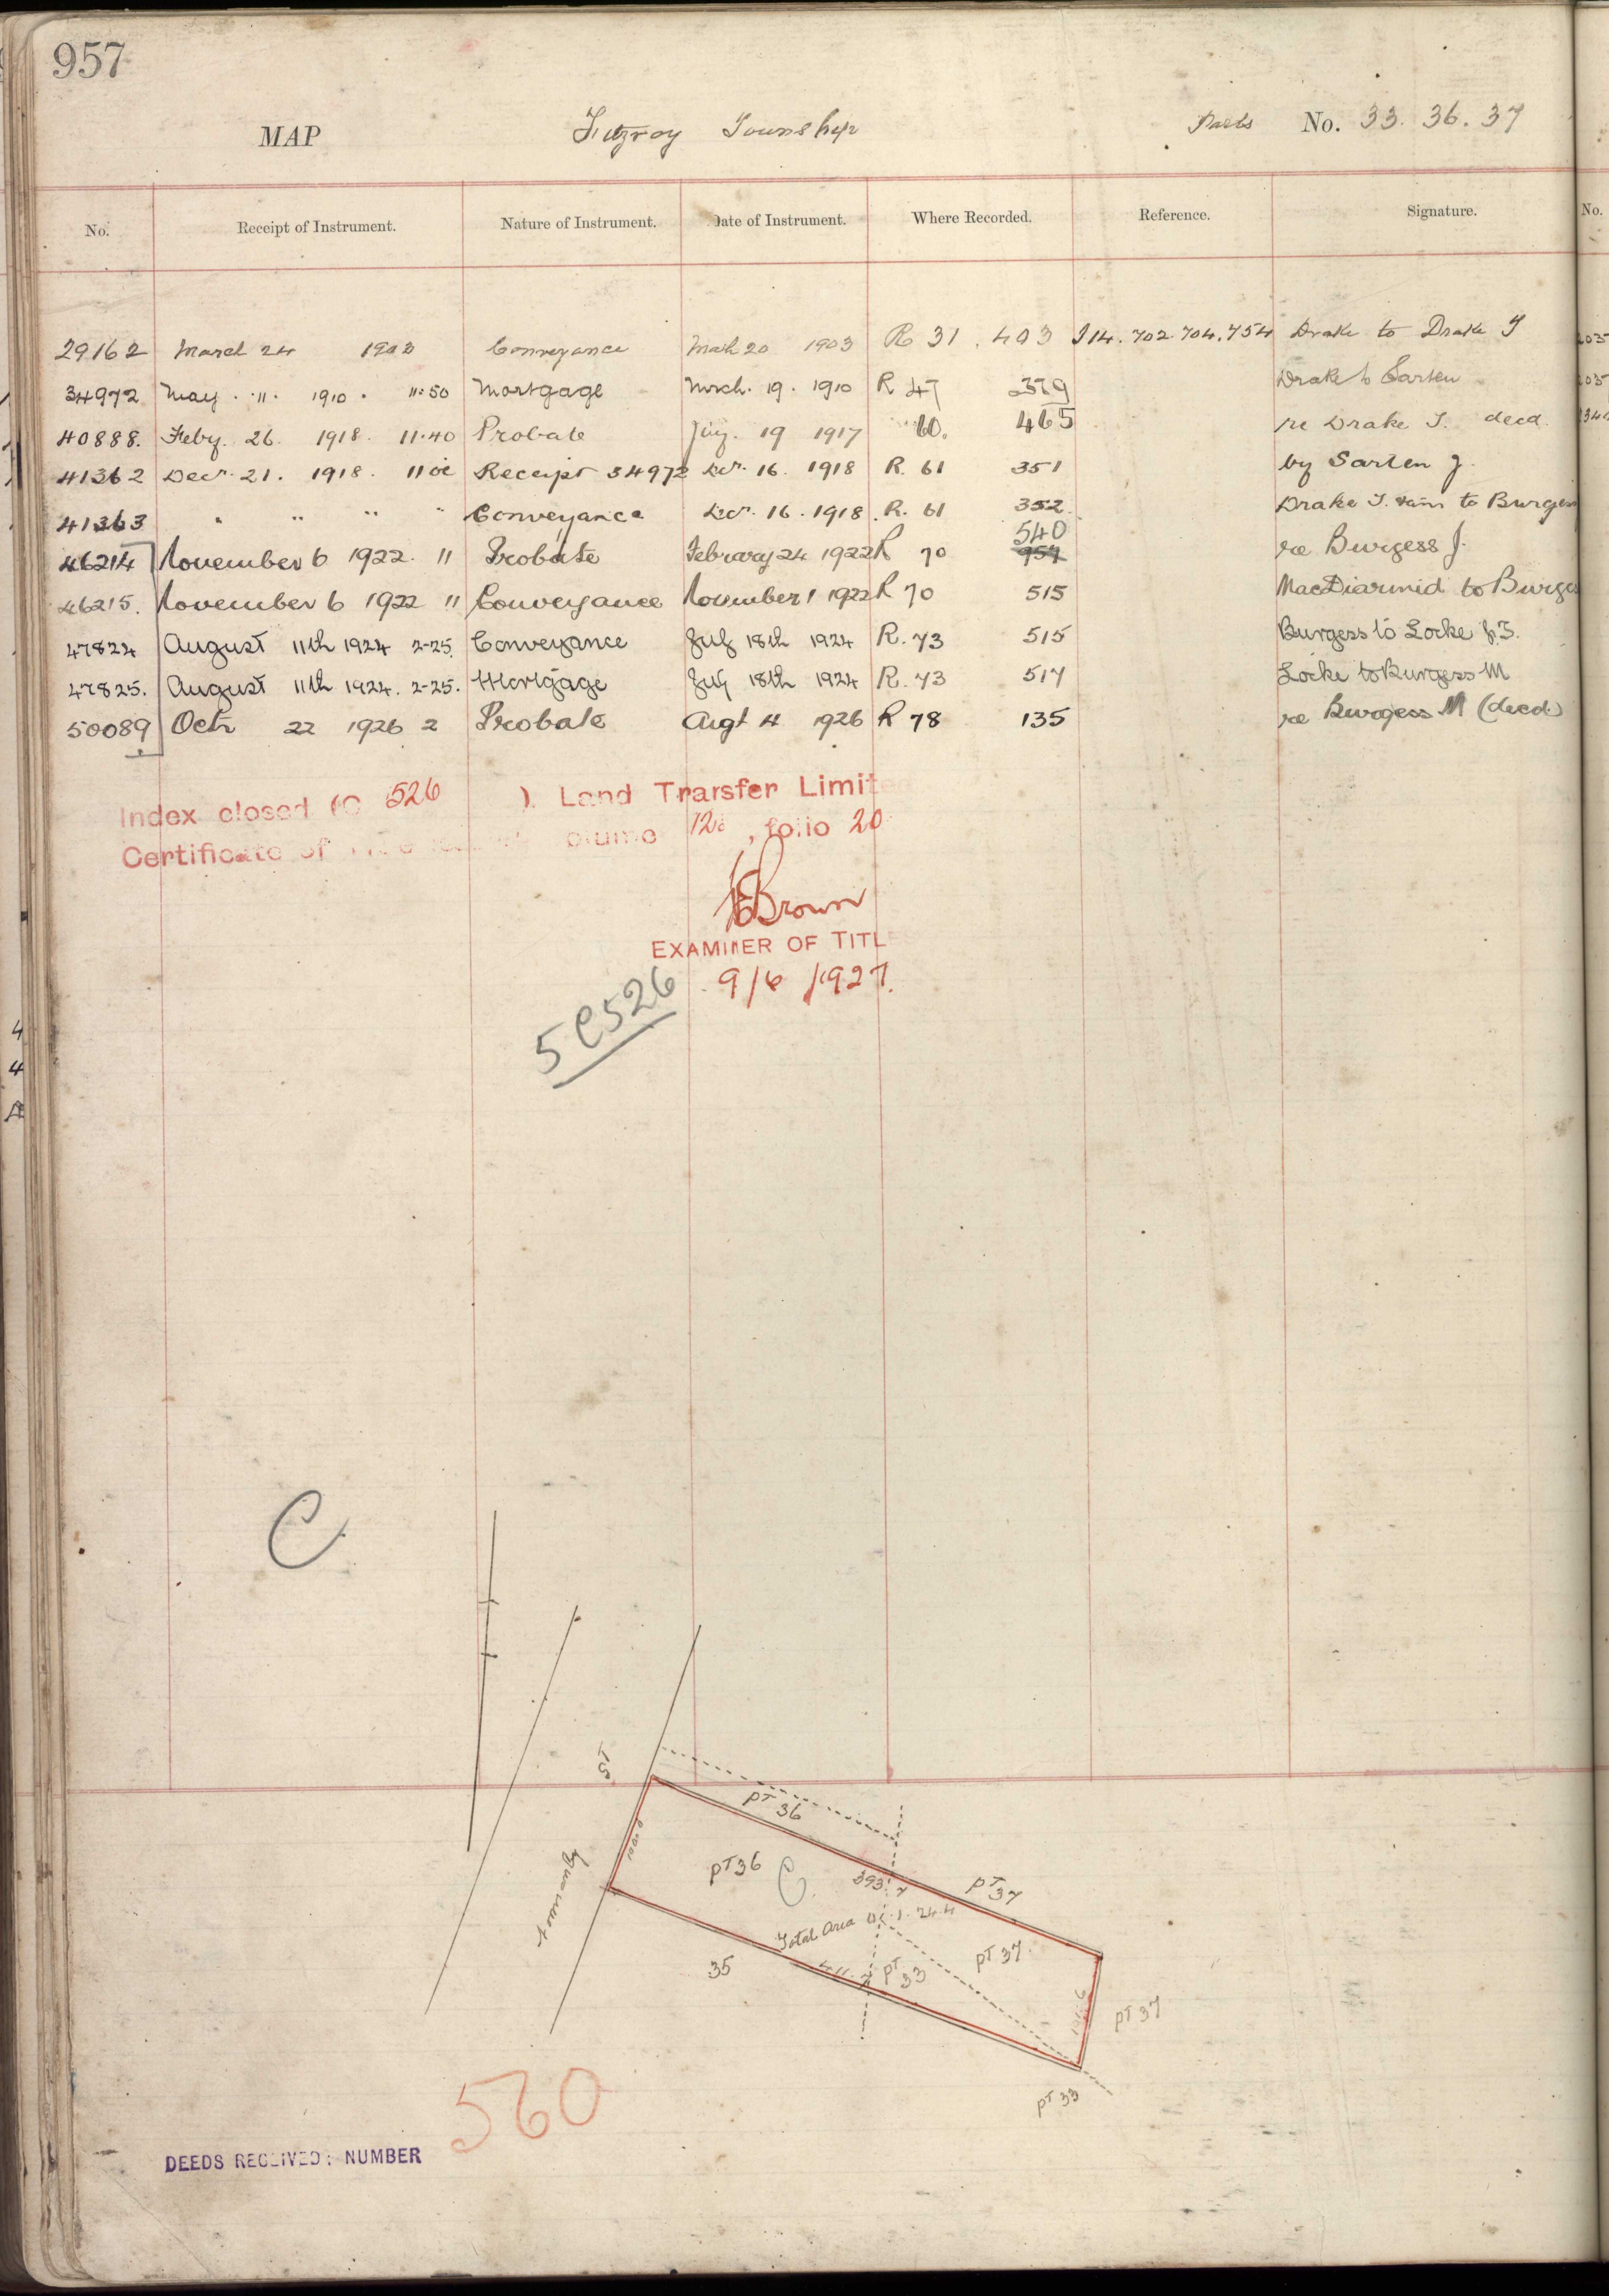 957
MAP Fitzroy Township Parts No. 33. 36. 37
No. Receipt of Instrument. Nature of Instrument. Date of Instrument. Where Recorded. Reference. Signature. No.
29162 March 24 1903 Conveyance March 20 1903 R 31. 403 I14. 702 704. 754 Drake to Drake J
34972 May 11. 1910. 11.50 Mortgage March. 19. 1910 R 47 379 Drake to Sarten
40888. Feby. 26. 1918. 11.40 Probate 19 1917 60. 465 re Drake J. decd.
41362 Decr. 21. 1918. Receipt 34972 Decr. 16. 1918 R. 61 351 by Sarten J.
41363 " " " " Conveyance Decr. 16. 1918. R. 61 352 Drake J. to Burgess
540
46214 November 6 1922. 11 Probate February 24 1922 R 70 957 re Burgess J.
46215. November 6 1922 11 Conveyance November 1 1922 R 70 515 MacDiarmid to Burgess
47824 August 11th 1924 2-25. Conveyance July 18th 1924 R. 73 515 Burgess to Locke J.
47825. August 11th 1924. 2-25. Mortgage July 18th 1924 R. 73 517 Locke to Burgess M
50089 Octr 22 1926 2 Probate Augt 4 1926 R 78 135 re Burgess M (decd.)
Index closed (C 526 ). Land Transfer Limite
Certificate of olume 12 , folio 20
Brown
EXAMINER OF TITL
9/6/1927.
5C526
C
ST
PT 36
100.0
PT 36 C.
393.7 PT 37
Nomanby
Total Area 0.1.24.4
PT 37.
35 411.7 PT 33
PT 37
PT 33
560
DEEDS RECEIVED: NUMBER